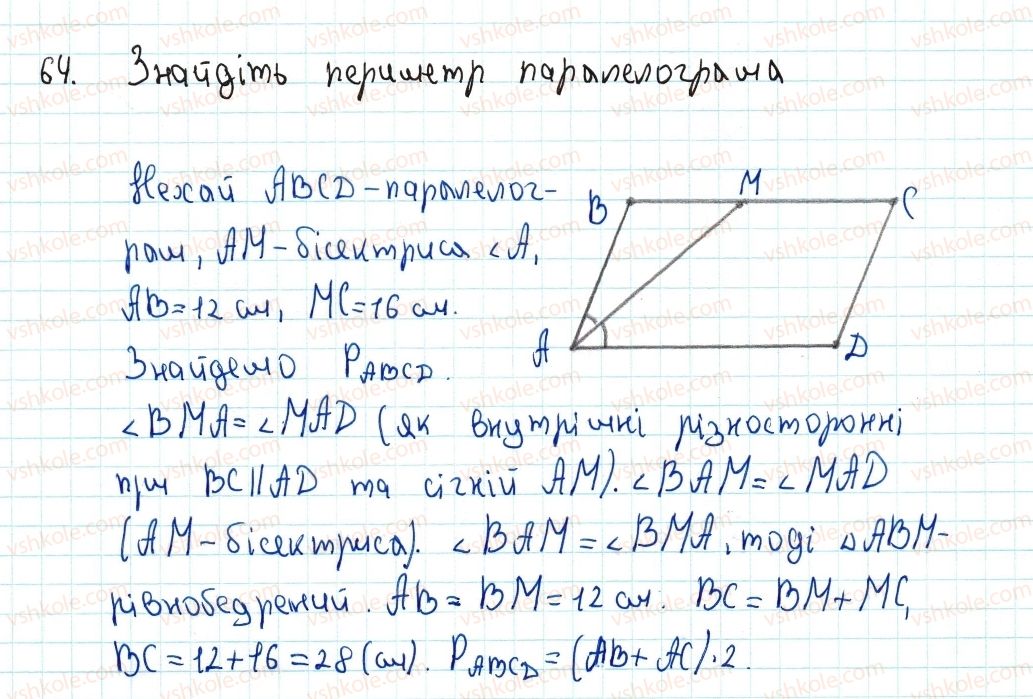 64. Знайдіть периметр паралелограма
Нехай ABCD - паралелог-
рам, AM - бісектриса ∠A,
AB = 12 см, MC = 16 см.
Знайдемо P ABCD.
B M C
A D
∠BMA = ∠MAD (як внутрішні різносторонні
при BC || AD та січній AM). ∠BAM = ∠MAD
(AM - бісектриса). ∠BAM = ∠BMA, тоді △ABM -
рівнобедрений. AB = BM = 12 см. BC = BM + MC,
BC = 12 + 16 = 28 (см). P ABCD = (AB + AC) · 2.